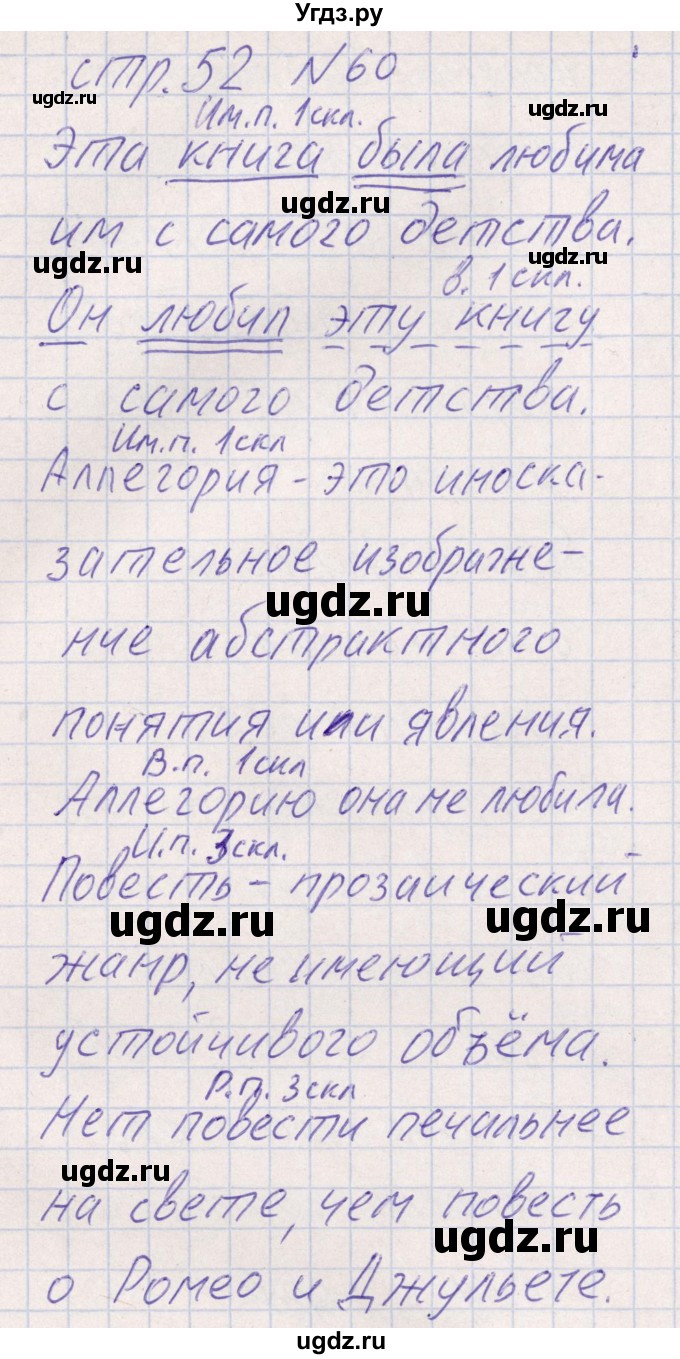 Угдз.ру
стр. 52 N 60
Им.п. 1скл.
Эта книга была любима
им с самого детства.
В. 1 скл.
Он любил эту книгу
с самого детства.
Им.п. 1скл
Аллегория - это иноска-
зательное изображе-
ние абстрактного
понятия или явления.
В.п. 1скл
Аллегорию она не любила.
И.п. 3скл.
Повесть - прозаический
жанр, не имеющий
устойчивого объёма.
Р.п. 3скл
Нет повести печальнее
на свете, чем повесть
о Ромео и Джульете.
ugdz.ru
ugdz.ru
ugdz.ru
ugdz.ru
ugdz.ru
ugdz.ru
ugdz.ru
ugdz.ru
ugdz.ru
ugdz.ru
ugdz.ru
ugdz.ru